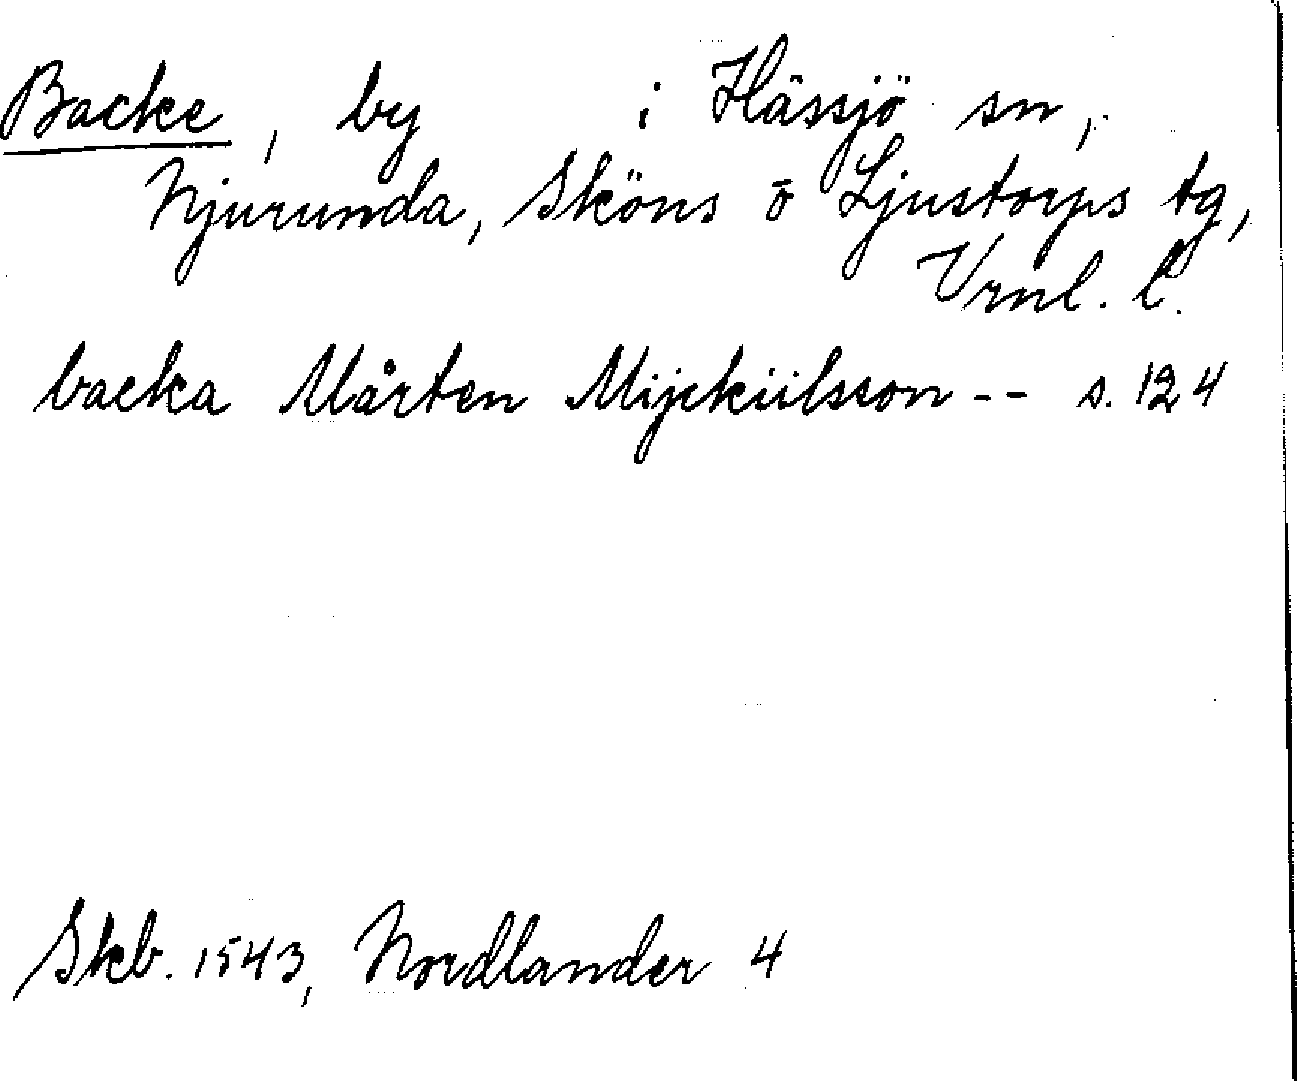 Backe, by i Hässjö sn,
Njurunda, Sköns o Ljustorps tg,
Vrnl. l.
backa Mårten Mijckiilsson -- s. 124
Skb. 1543, Nordlander 4